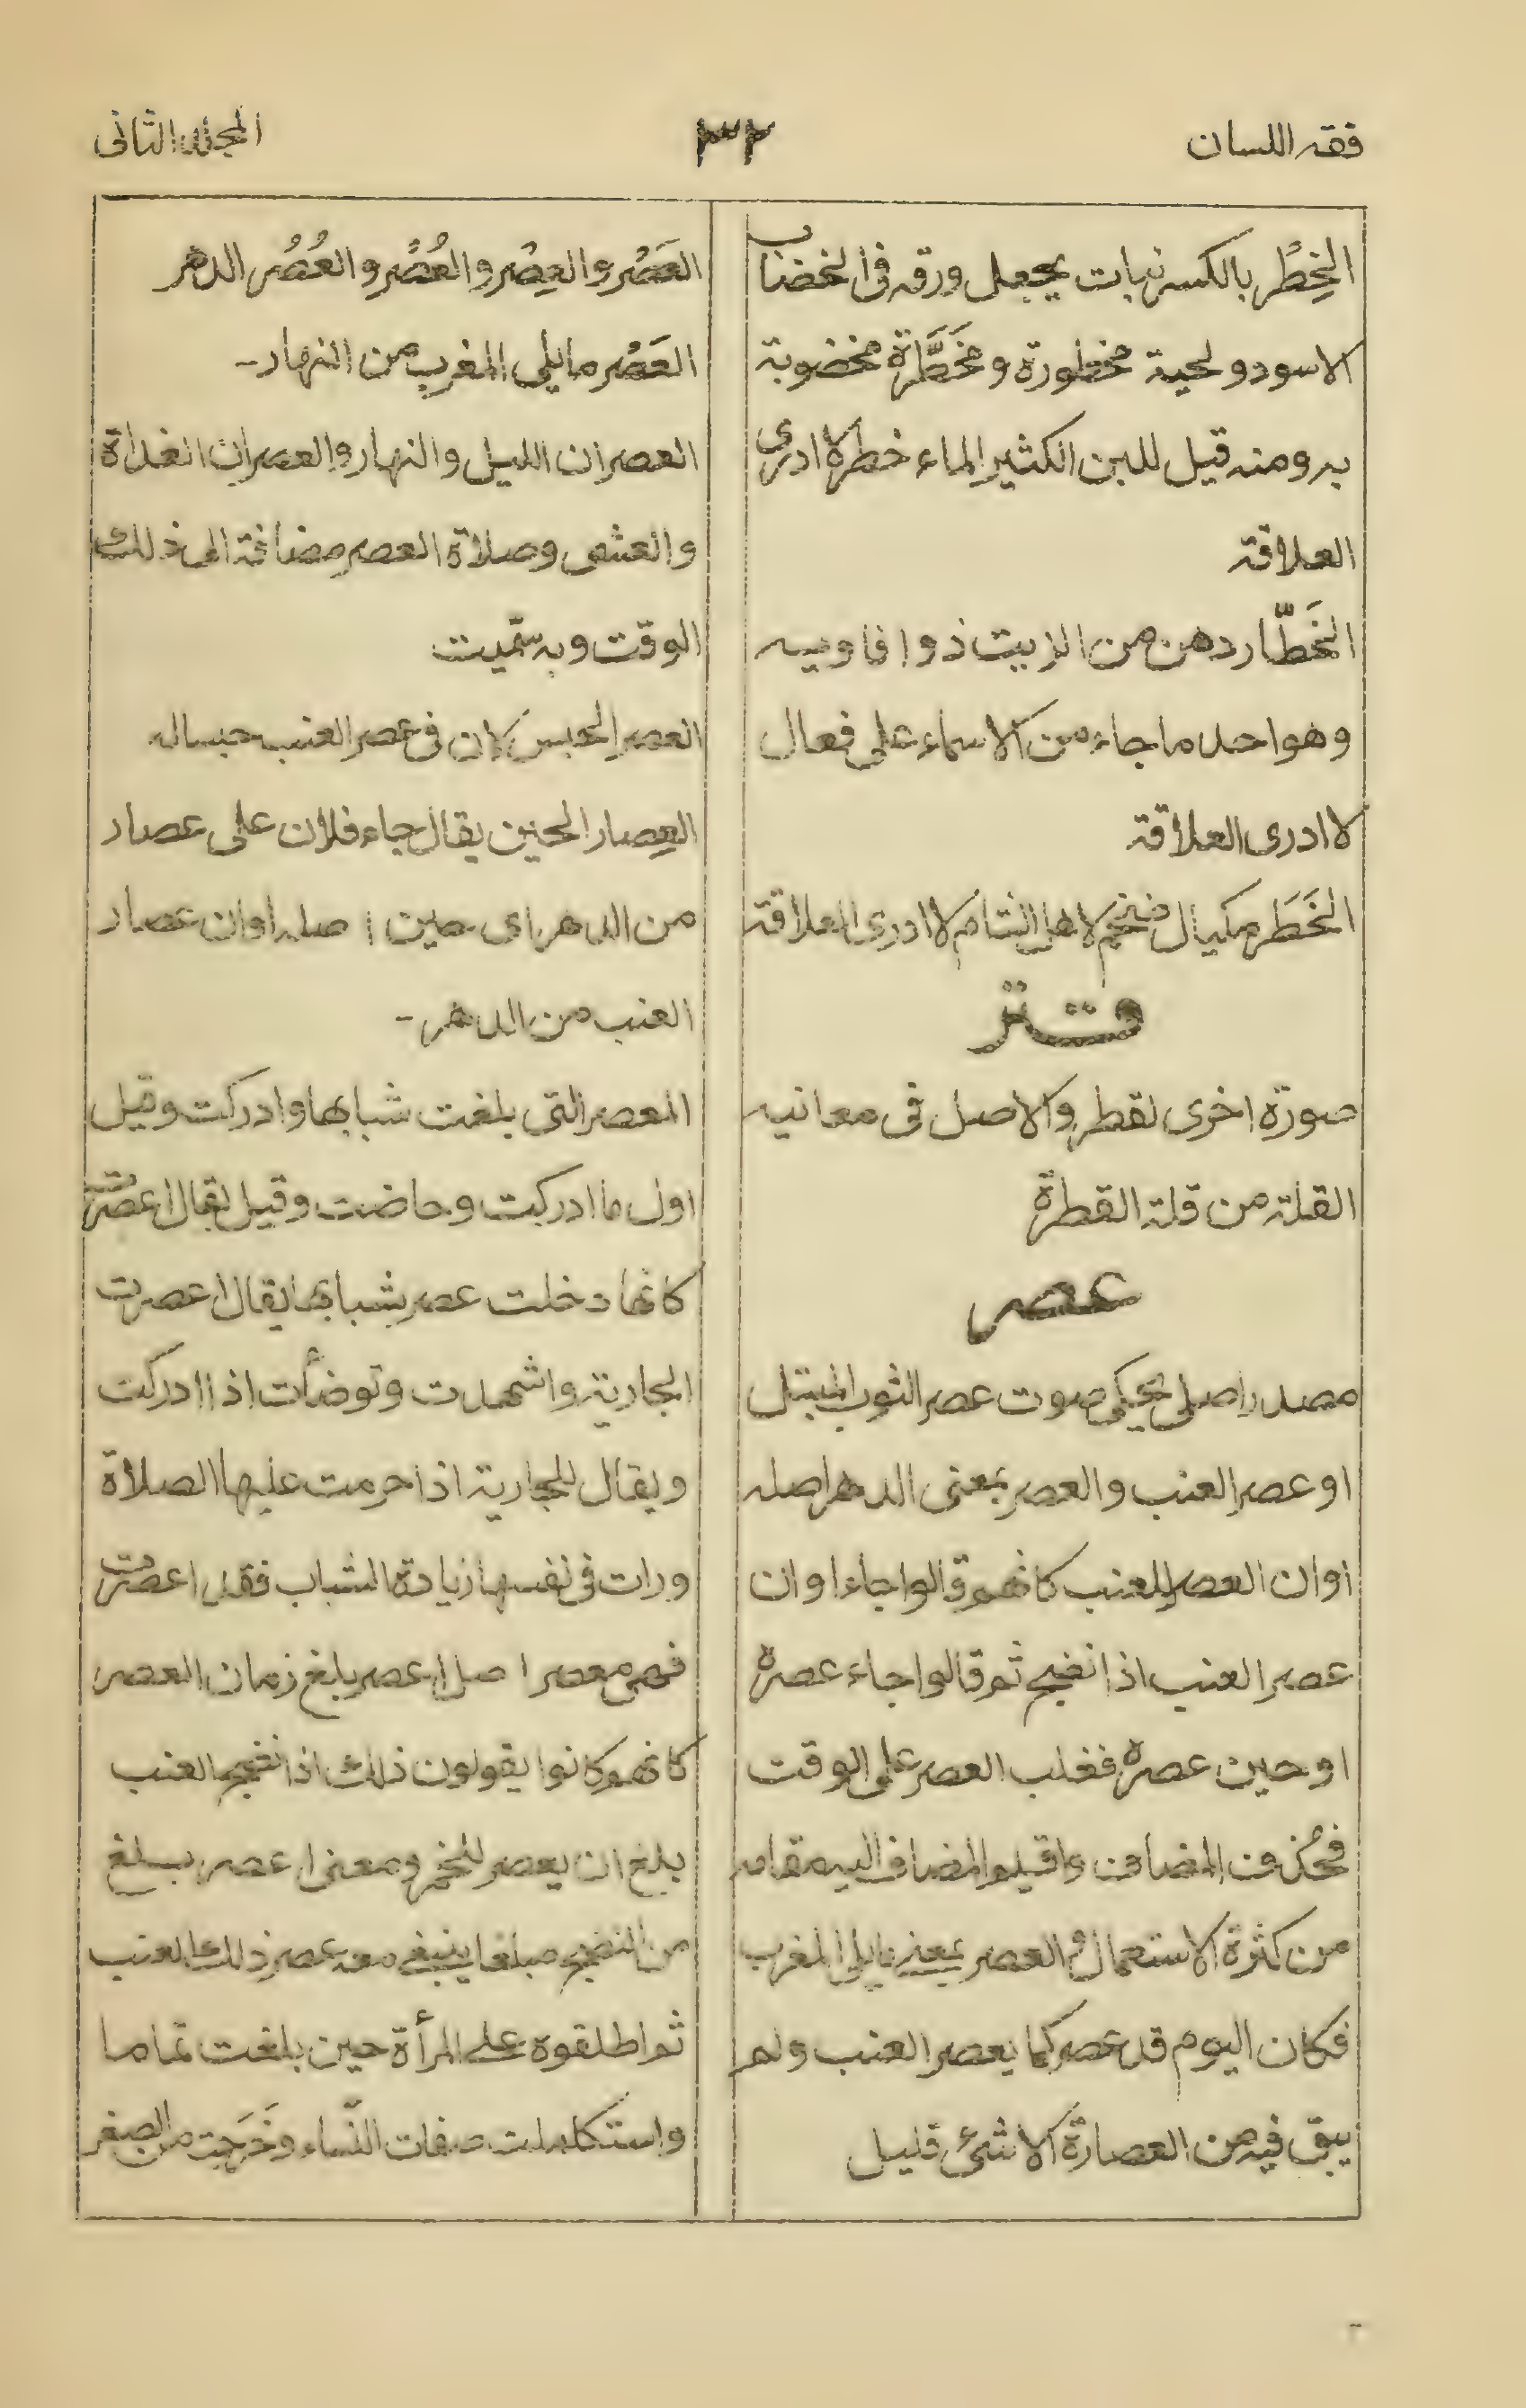 فقه اللسان
٣٢
المجلد الثانى
الخِطْر بالكسر نبات يجعل ورقه فى الخضاب
الاسود ولحية مخطورة ومخَطَّرة مخضوبة
به ومنه قيل للبن الكثير الماء خطر لا ادرى
العلاقة
الخَطّار دهن من الزيت ذو افاويه
وهو احد ما جاء من الاسماء على فعال
لا ادرى العلاقة
الخَطَر مكيال ضخم لاهل الشام لا ادرى العلاقة
قتر
صورة اخرى لقطر والاصل فى معانيه
القلة من قلة القطرة
عصر
مصدر اصلى يحكى صوت عصر الثوب المبتل
او عصر العنب والعصر بمعنى الدهر اصله
اوان العصر للعنب كانهم قالوا جاء اوان
عصر العنب اذا نضج ثم قالوا جاء عصره
او حين عصره فغلب العصر على الوقت
فحُذف المضاف واقيم المضاف اليه مقامه
من كثرة الاستعمال والعصر بمعنى ما يلى المغرب
فكان اليوم قد عصر كما يعصر العنب ولم
يبق فيه من العصارة الا شئ قليل
العَصْر والعِصْر والعُصْر والعُصُر الدهر
العَصْر ما يلى المغرب من النهار -
العصران الليل والنهار والعصران الغداة
والعشى وصلاة العصر مضافة الى ذلك
الوقت وبه سمّيت
العصر الحبس كان فى عصر العنب حبسا له
العِصار الحين يقال جاء فلان على عصار
من الدهر اى حين اصله اوان عصار
العنب من الدهر -
المعصر التى بلغت شبابها وادركت وقيل
اول ما ادركت وحاضت وقيل يقال اعصرت
كانها دخلت عصر شبابها يقال اعصرت
الجارية واشهدت وتوضأت اذا ادركت
ويقال للجارية اذا حرمت عليها الصلاة
ورات فى نفسها زيادة الشباب فقد اعصرت
فهى معصر اصل اعصر بلغ زمان العصر
كانهم كانوا يقولون ذلك اذا نضج العنب
بلغ ان يعصر للخمر ومعنى اعصر بلغ
من النضج مبلغا ينبغى معه عصر ذلك العنب
ثم اطلقوه على المرأة حين بلغت تماما
واستكملت صفات النّساء وخَرَجَت من الصغر